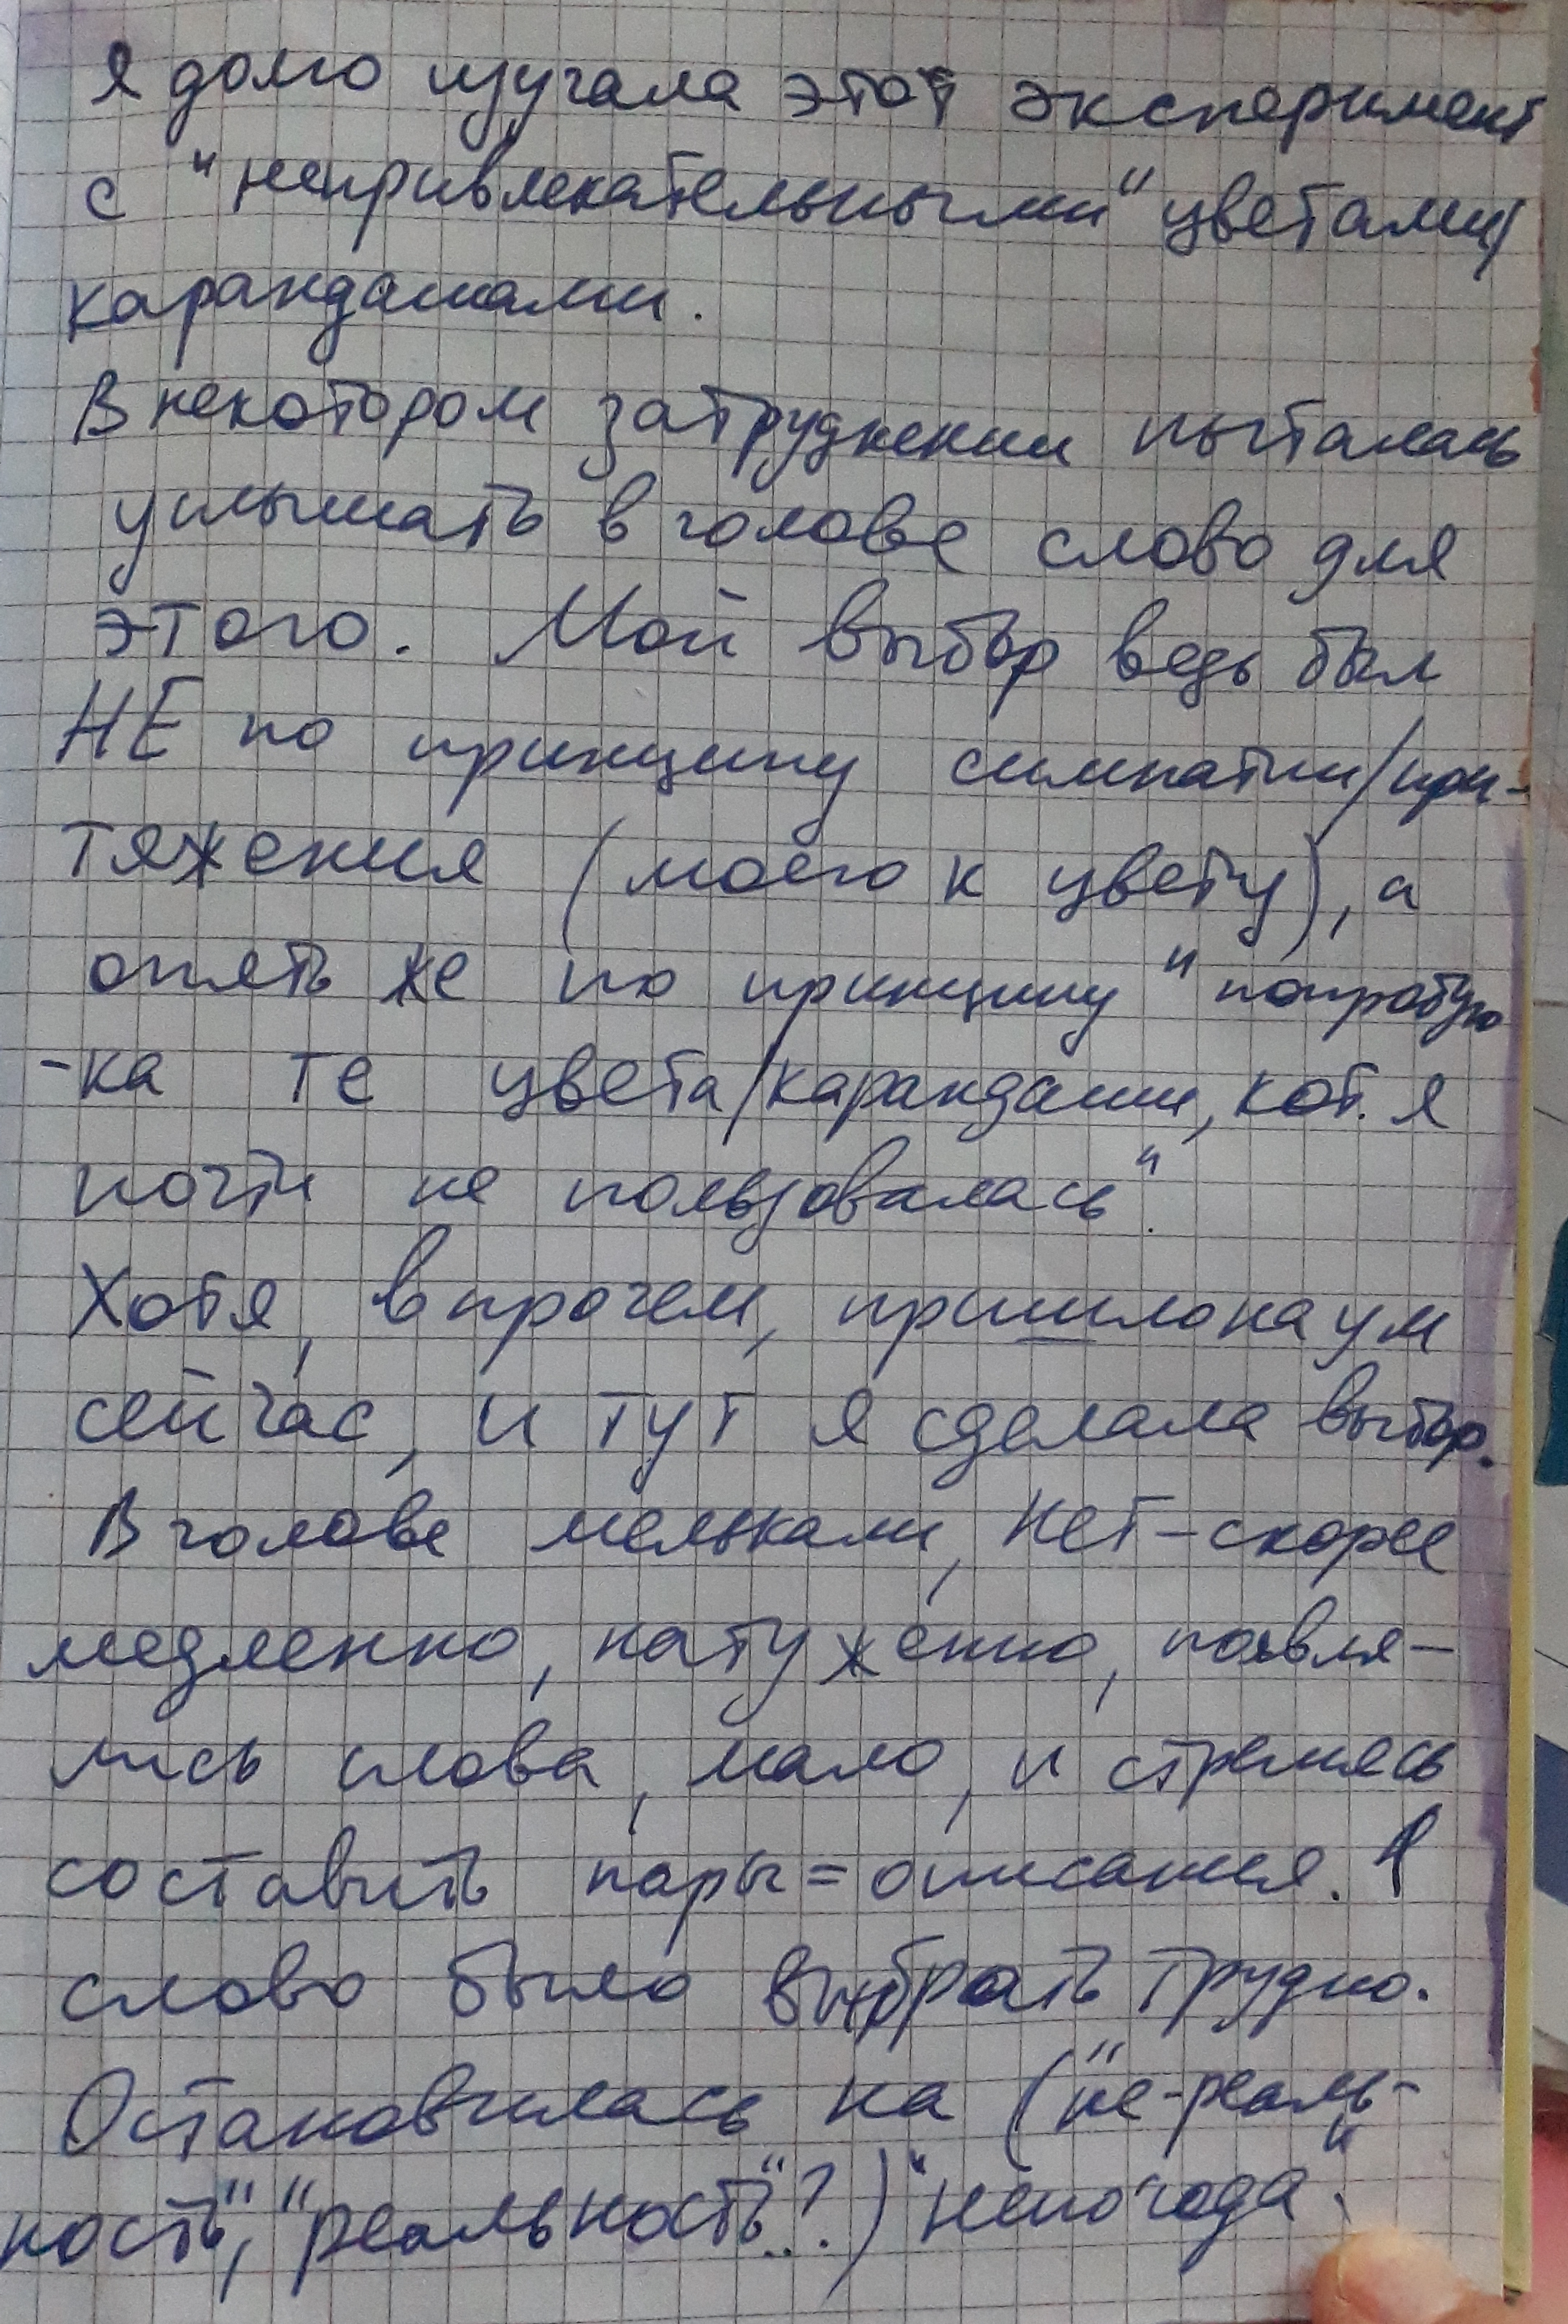 я долго изучала этот эксперимент
с "непривлекательными" цветами/
карандашами.
В некотором затруднении пыталась
услышать в голове слово для
этого. Мой выбор ведь был
НЕ по принципу симпатии/при-
тяжения (моего к цвету), а
опять же по принципу "попробую
-ка те цвета/карандаши, кот. я
почти не пользовалась".
Хотя, впрочем, пришло на ум
сейчас, и тут я сделала выбор.
В голове мелькали, нет - скорее
медленно, натужно, появля-
лись слова, мало, и стремясь
составить пары = описания. 1
слово было выбрать трудно.
Остановилась на ("не-реаль-
ность", "реальность"...?) "непогода".